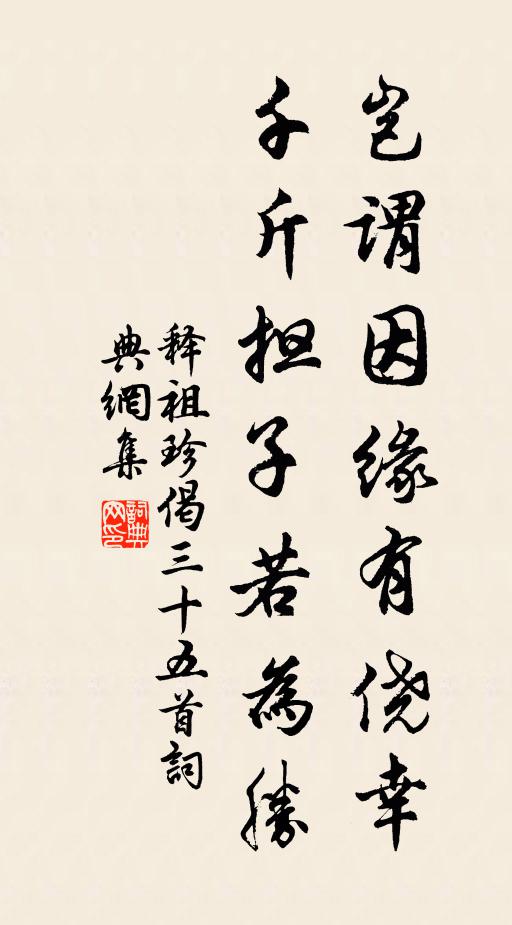 岂谓因缘有侥幸
千斤担子若為勝
释祖珍偈三十五首詞
典網集
詞典
网印